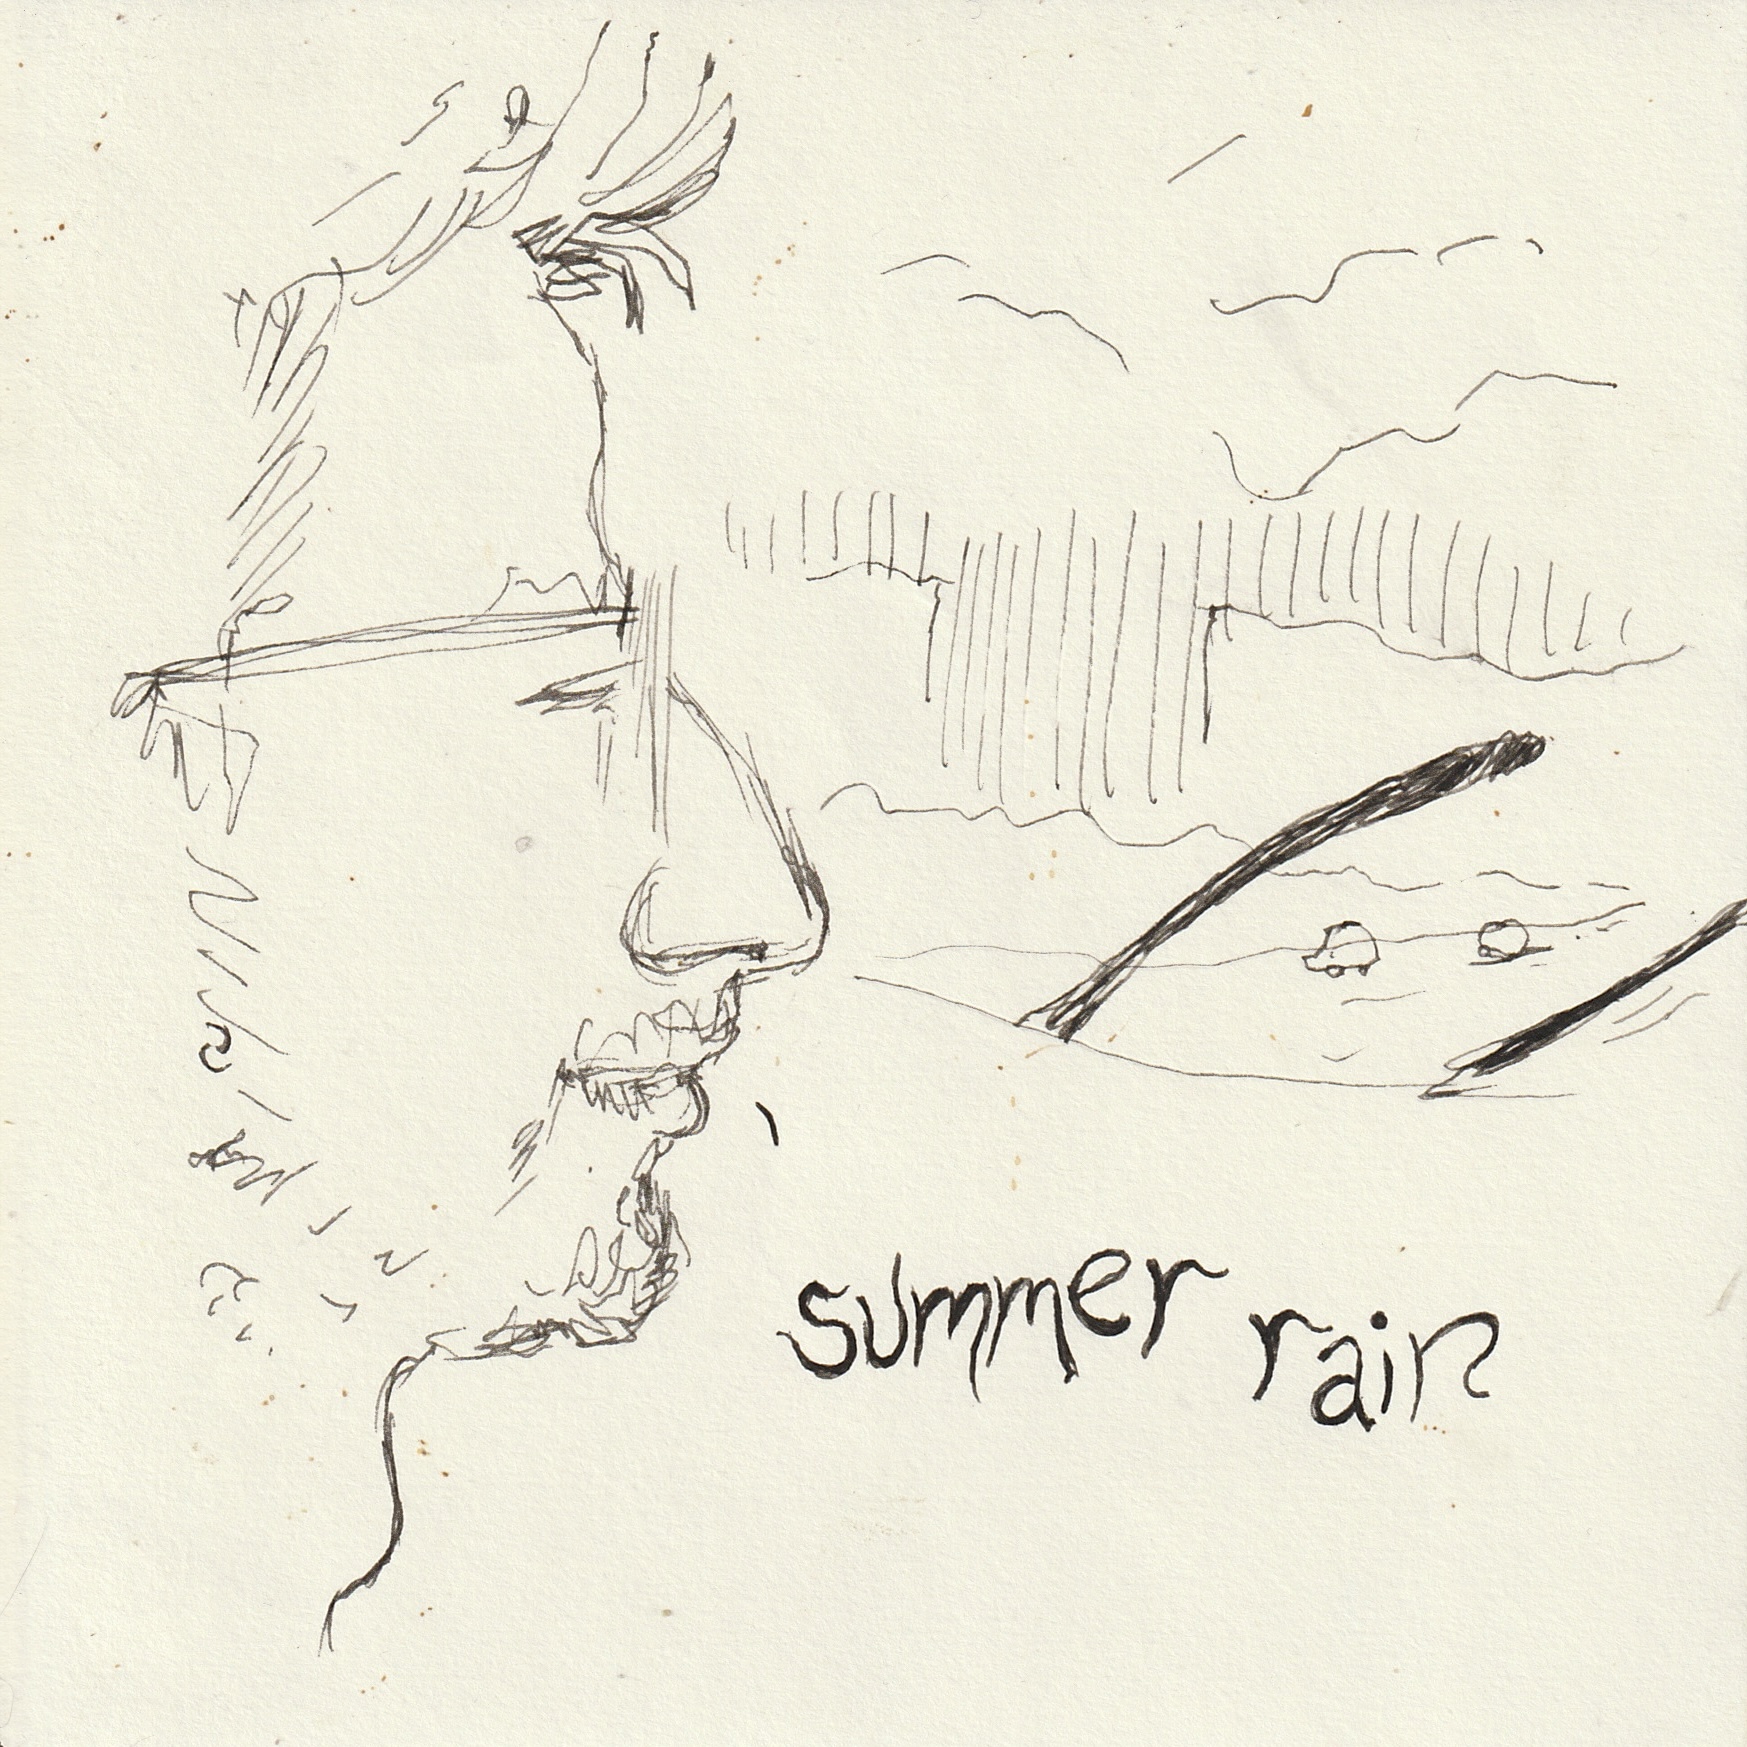 summer rain